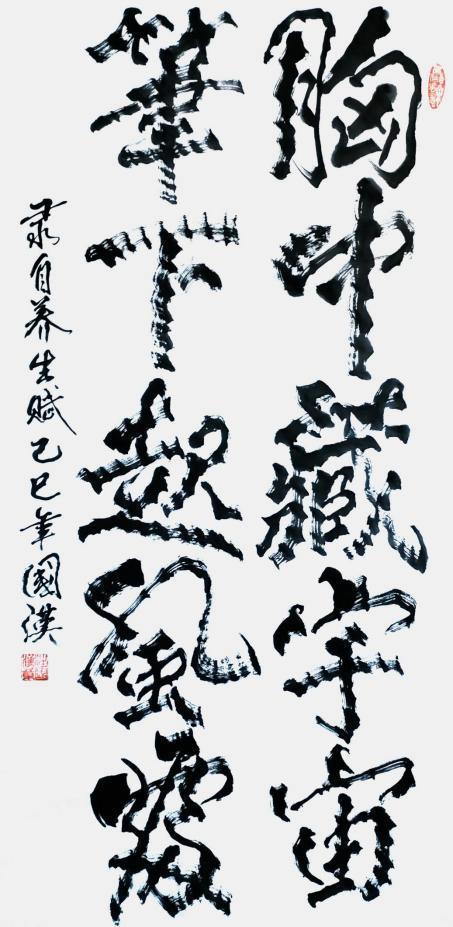 胸中藏宇宙
筆下起風
录自养生賦己巳年國漢